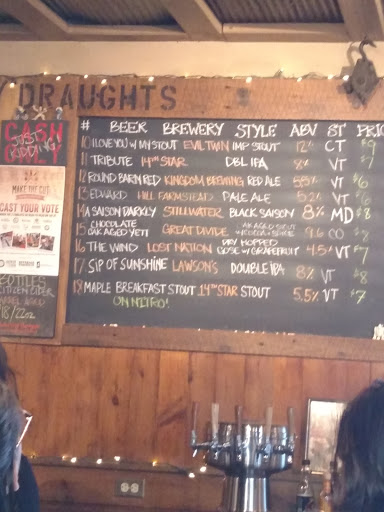 DRAUGHTS
# BEER BREWERY STYLE ABV ST PRICE
10 I LOVE YOU W/ MY STOUT EVIL TWIN IMP STOUT 12% CT $9
11 TRIBUTE 14TH STAR DBL IPA 8% VT $7
12 ROUND BARN RED KINGDOM BREWING RED ALE 5.5% VT $6
13 EDWARD HILL FARMSTEAD PALE ALE 5.2% VT $6
14 SAISON DARKLY STILLWATER BLACK SAISON 8% MD $8
15 CHOCOLATE OAK AGED YETI GREAT DIVIDE OAK AGED STOUT 9.5 CO
16 THE WIND LOST NATION DRY HOPPED GOSE W/ GRAPEFRUIT 4.5% VT $7
17 SIP OF SUNSHINE LAWSON'S DOUBLE IPA 8% VT $8
18 MAPLE BREAKFAST STOUT 14TH STAR STOUT 5.5% VT $7
ON NITRO!
CASH
JUST KIDDING!
MAKE THE CUT
CAST YOUR VOTE
BOTTLES
CITIZEN CIDER
18/22oz